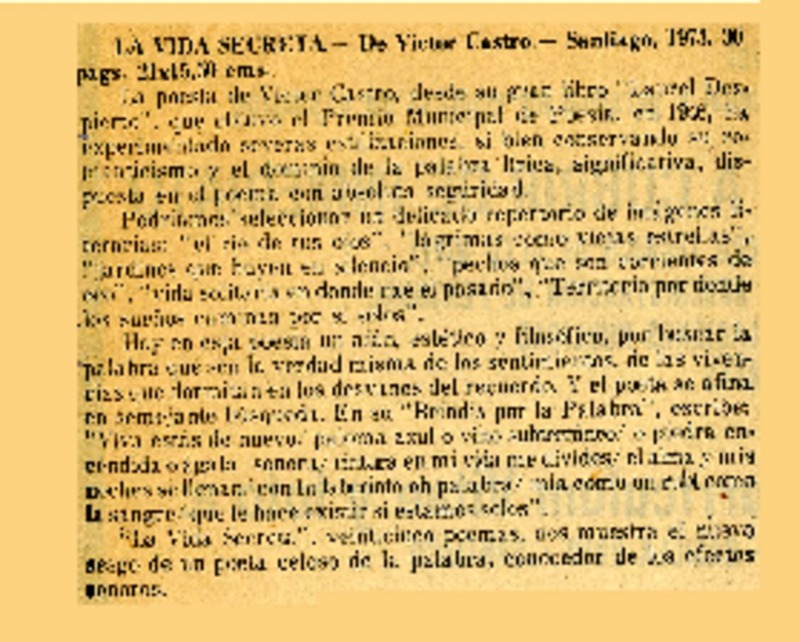 LA VIDA SECRETA.— De Víctor Castro.— Santiago, 1973. 30
pags. 21x15,50 cms.
La poesía de Víctor Castro, desde su gran libro "Laurel Des-
pierto", que obtuvo el Premio Municipal de Poesía, en ha
experimentado severas si bien conservando su ro-
manticismo y el dominio de la palabra lírica, significativa, dis-
puesta en el poema con absoluta seguridad.
Podríamos seleccionar un delicado repertorio de imágenes li-
terarias: "el río de tus ojos", "lágrimas como viejas estrellas",
"jardines que huyen en silencio", "pechos que son corrientes de
"vida solitaria en donde cae el pasado", "Territorio por donde
los sueños caminan por sí solos".
Hay en esta poesía un afán, estético y filosófico, por buscar la
palabra que sea la verdad misma de los sentimientos, de las viven-
cias que dormitan en los desvanes del recuerdo. Y el poeta se afina
en semejante búsqueda. En su "Brindis por la Palabra", escribe:
"Viva estás de nuevo/ paloma azul o vino subterráneo/ o piedra en-
cendida o en mi vida me divides/ el alma y mis
noches se llenan/ con tu laberinto oh palabra/ mía como un
la sangre/ que le hace existir si estamos solos".
"La Vida Secreta", veinticinco poemas, nos muestra el nuevo
sesgo de un poeta celoso de la palabra, conocedor de los efectos
sonoros.